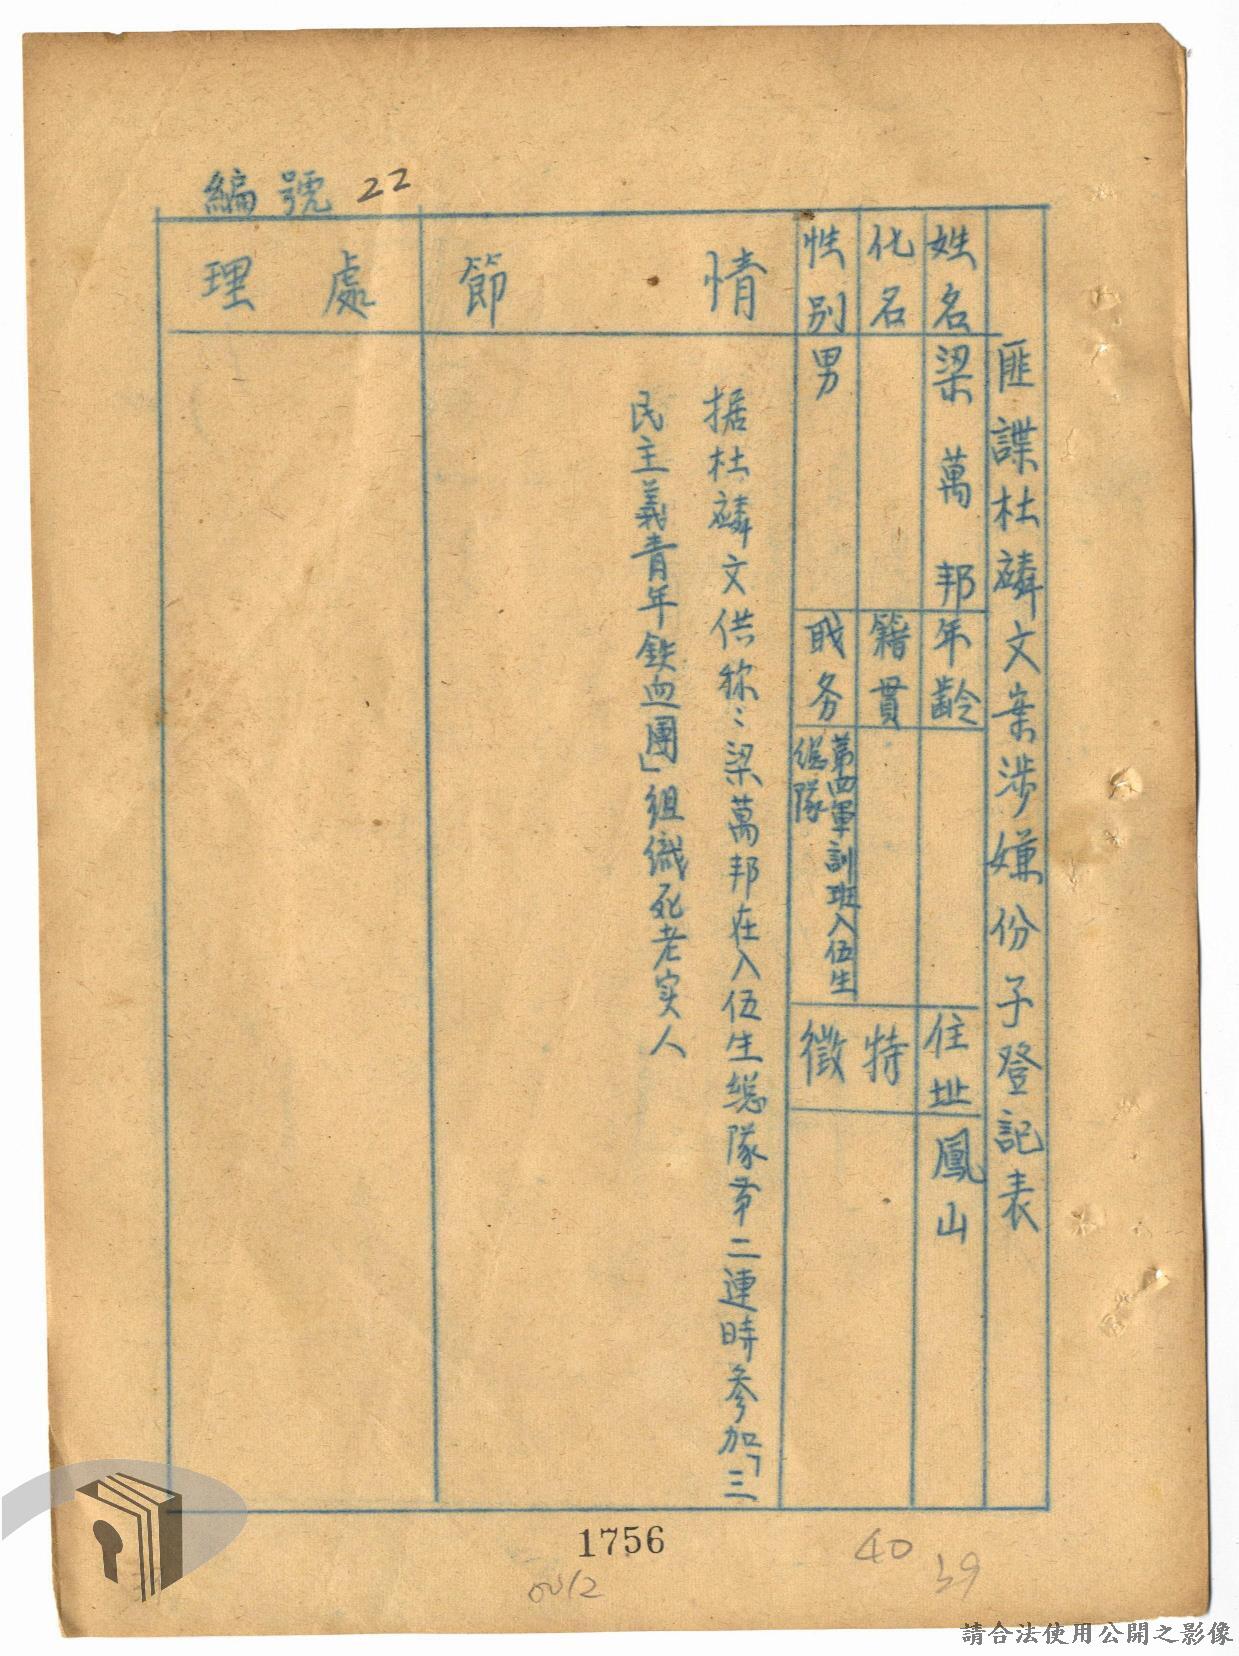 編號 22
匪諜杜麟文案涉嫌份子登記表
姓名 梁萬邦 年齡 住址 鳳山
化名 籍貫 特徵
性別 男 职务 第四軍訓班入伍生
總隊
情節
据杜麟文供称：梁萬邦在入伍生總隊第二連時參加「三
民主義青年鉄血團」組織死老实人
處理
1756
40
39
請合法使用公開之影像